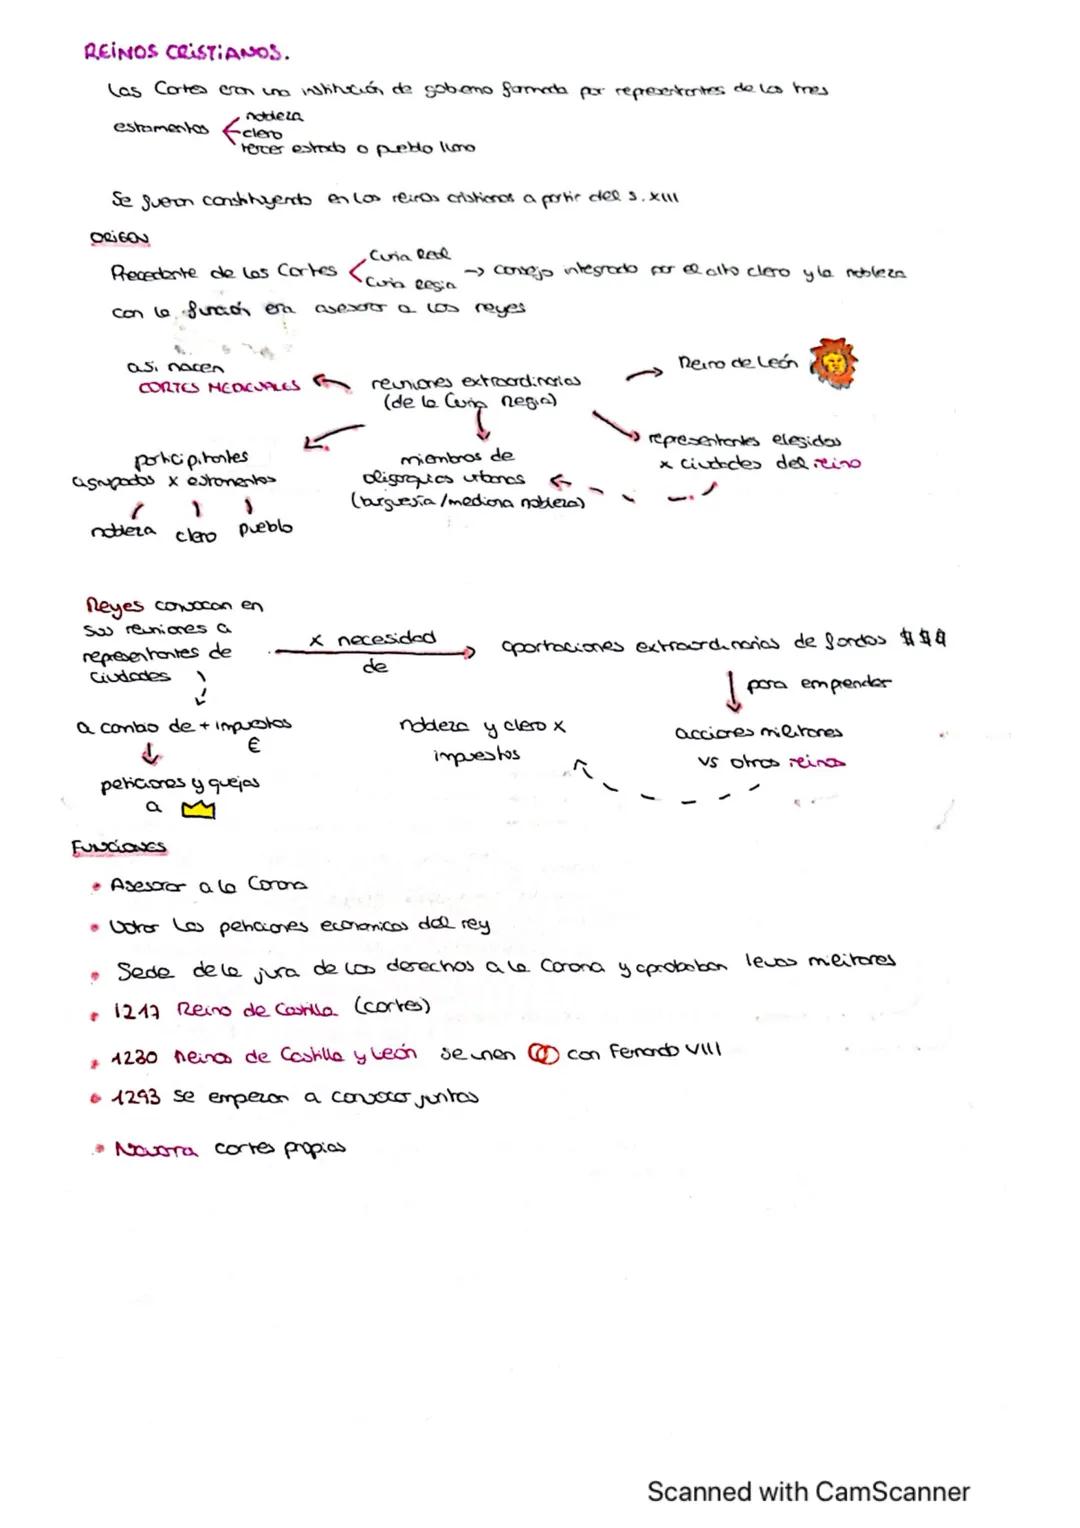 REINOS CRISTIANOS.
Las Cortes eran una institución de gobierno formada por representantes de los tres
estamentos
nobleza
clero
tercer estado o pueblo llano
Se fueron constituyendo en los reinos cristianos a partir del s. XIII
ORIGEN
Precedente de las Cortes
Curia Real
Curia Regia
→ consejo integrado por el alto clero y la nobleza
con la función era asesorar a los reyes
así nacen
CORTES MEDIEVALES
reuniones extraordinarias
(de la Curia Regia)
Reino de León
representantes elegidos
x ciudades del reino
participantes
agrupados x estamentos
miembros de
oligarquías urbanas
(burguesía/mediana nobleza)
nobleza clero pueblo
Reyes convocan en
sus reuniones a
representantes de
ciudades
x necesidad
de
aportaciones extraordinarias de fondos $$$
para emprender
a cambio de + impuestos
€
nobleza y clero x
impuestos
acciones militares
vs otros reinos
peticiones y quejas
a
FUNCIONES
• Asesorar a la Corona
• Votar las peticiones económicas del rey
• Sede de la jura de los derechos a la Corona y aprobaban levas militares
• 1217 Reino de Castilla (cortes)
• 1230 Reinos de Castilla y León se unen con Fernando VIII
• 1293 se empezan a convocar juntas
• Navarra cortes propias
Scanned with CamScanner